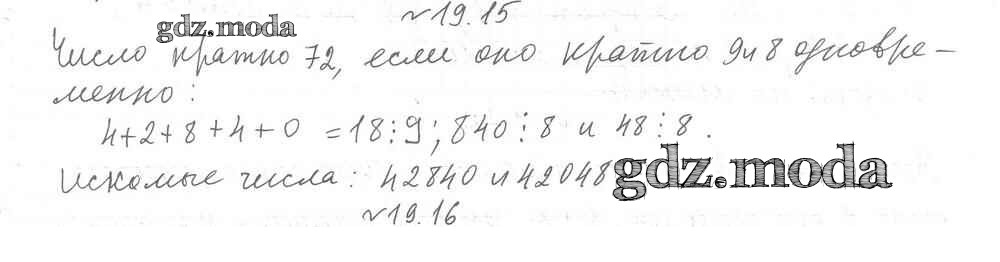 №19.15
gdz.moda
Число кратно 72, если оно кратно 9 и 8 одновре-
менно:
4+2+8+4+0 = 18⋮9; 840⋮8 и 48⋮8.
Искомые числа: 42840 и 42048
gdz.moda
№19.16